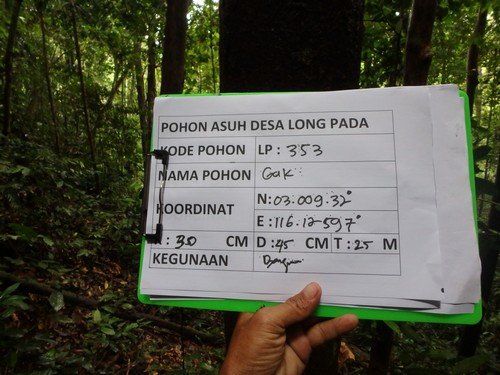 POHON ASUH DESA LONG PADA
KODE POHON LP : 353
NAMA POHON Gak
KOORDINAT N: 03.009.32°
E : 116.12-597°
: 30 CM D : 45 CM T : 25 M
KEGUNAAN